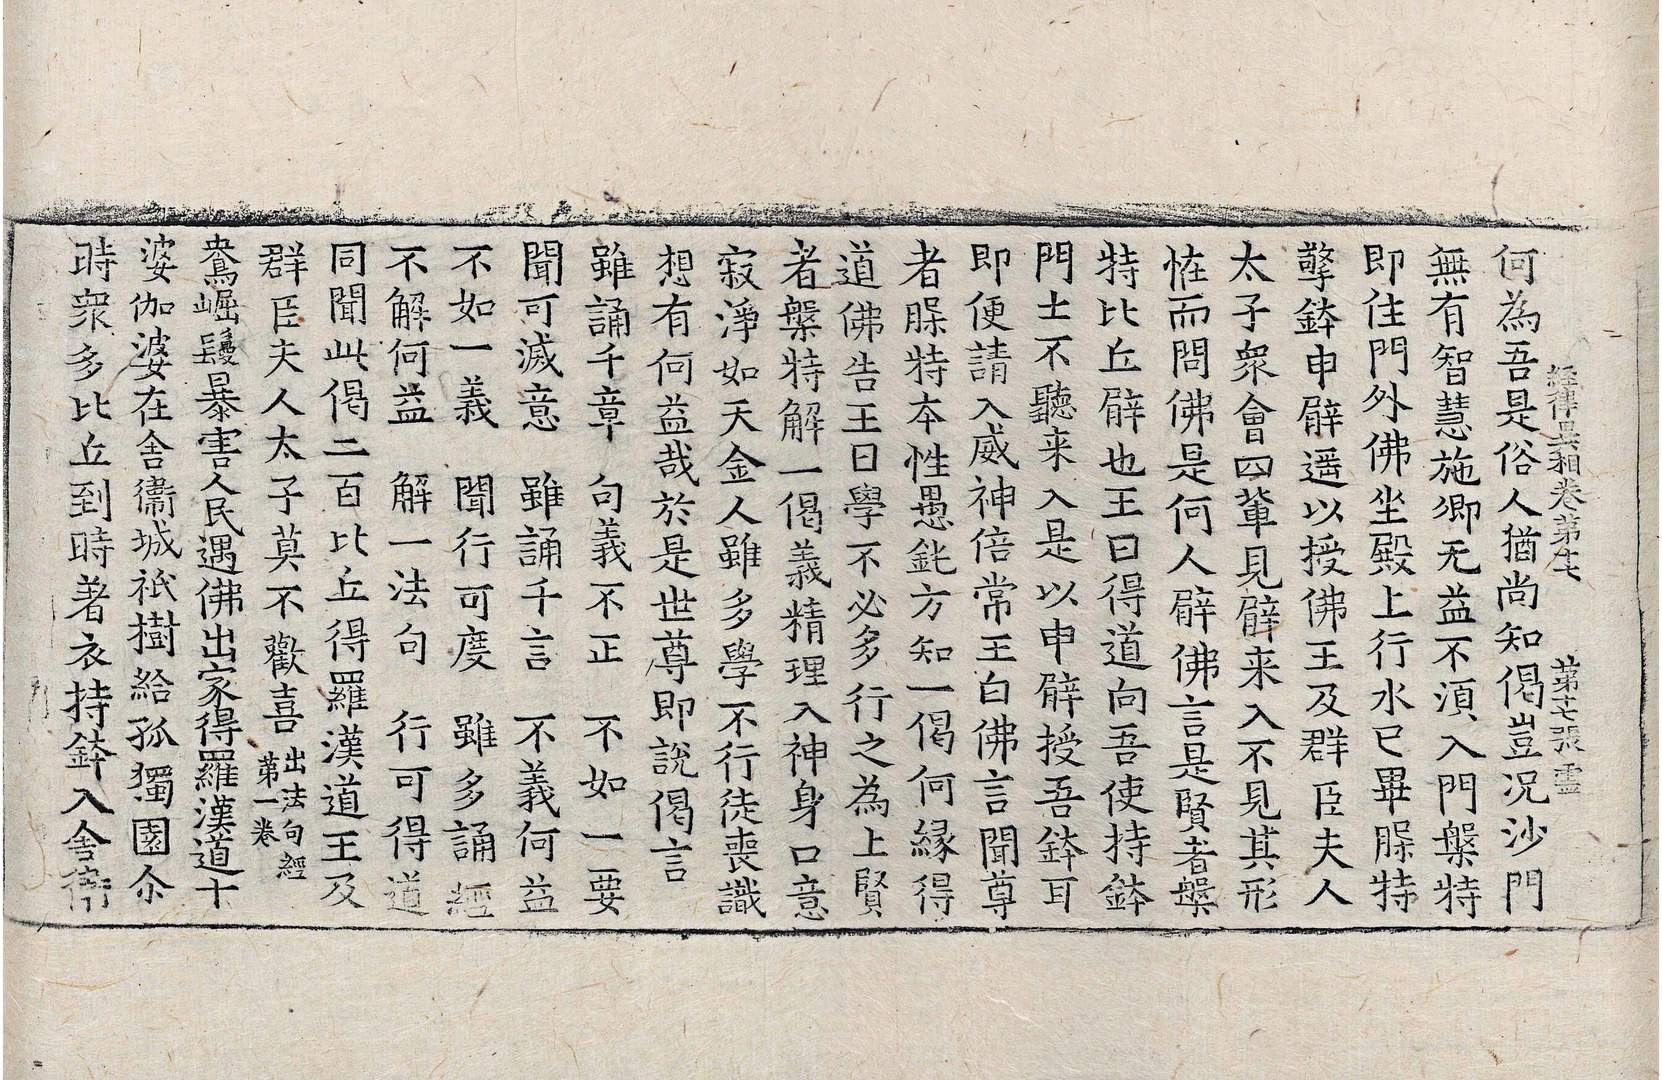 經律異相卷第十七 第十七張 靈
何為吾是俗人猶尚知偈豈況沙門
無有智慧施卿无益不湏入門槃特
即住門外佛坐殿上行水已畢䐗特
擎鉢申臂遥以授佛王及群臣夫人
太子衆會四軰見臂来入不見其形
恠而問佛是何人臂佛言是賢者槃
特比丘臂也王曰得道向吾使持鉢
門士不聽来入是以申臂授吾鉢耳
即便請入威神倍常王白佛言聞尊
者䐗特本性愚鈍方知一偈何縁得
道佛告王曰學不必多行之為上賢
者槃特解一偈義精理入神身口意
寂淨如天金人雖多學不行徒喪識
想有何益哉於是世尊即說偈言
雖誦千章 句義不正 不如一要
聞可滅意 雖誦千言 不義何益
不如一義 聞行可度 雖多誦經
不解何益 解一法句 行可得道
同聞此偈二百比丘得羅漢道王及
群臣夫人太子莫不歡喜 出法句經第一卷
鴦崛髮暴害人民遇佛出家得羅漢道十
婆伽婆在舎衞城祇樹給孤獨園尒
時衆多比丘到時著衣持鉢入舎衛